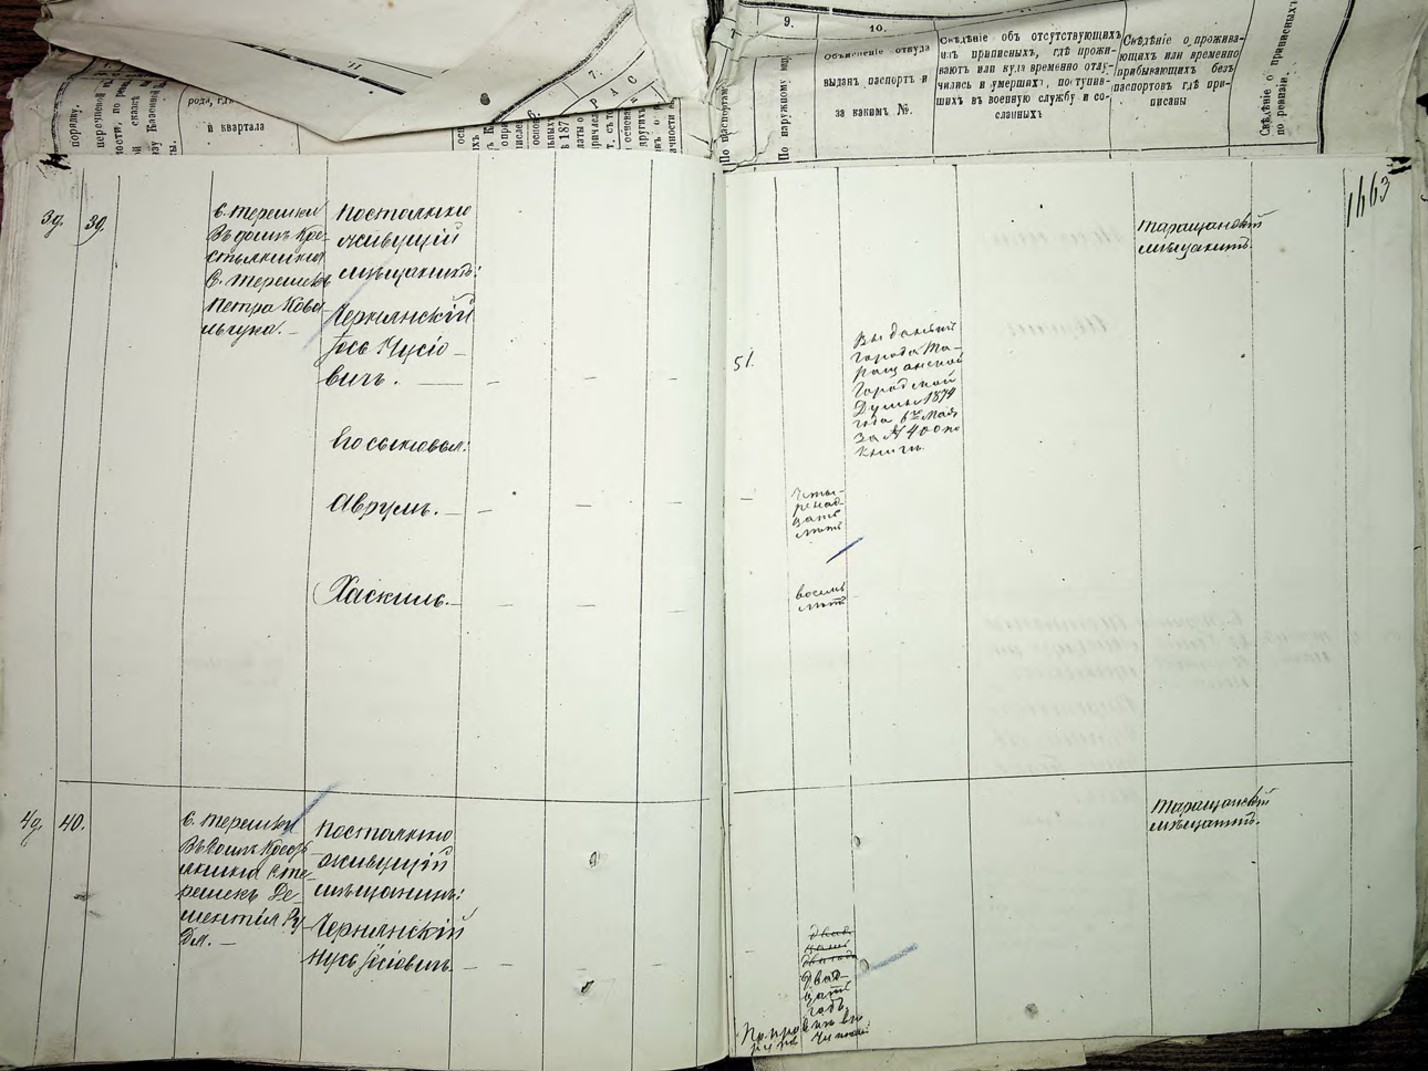 9.
10.
Объясненіе откуда
выданъ паспортъ и
за какимъ №.
Свѣдѣніе объ отсутствующихъ
изъ приписныхъ, гдѣ прожи-
ваютъ или куда временно отлу-
чились и умершихъ, поступив-
шихъ въ военную службу и со-
сланныхъ
Свѣдѣніе о прожива-
ющихъ или временно
прибывающихъ безъ
паспортовъ гдѣ при-
писаны
Свѣдѣніе о приписныхъ
по ревизіи.
По паспортамъ
По наружному
7.
и квартала
1663
39.
39.
с. Терешки
Въ домѣ Кре-
стьянина
С. Терешекъ
Петра Кова-
льчука. —
Постоянно
живущій
мѣщанинъ:
Чернянскій
Іось Нусіо-
вичъ. —
51.
Выданный
города Та-
ращанской
Городской
Думы 1874
года 6го Мая
за № 400 по
книгѣ.
Таращанскій
мѣщанинъ.
Его сыновья:
Аврумъ. —
четы-
ренад-
цать
лѣтъ
Хаскиль. —
восемь
лѣтъ
40.
с. Терешки
Въ домѣ Кресть
янина с. Те-
решекъ Де-
ментія Ру-
дя. —
Постоянно
живущій
мѣщанинъ:
Чернянскій
Нусь Іосіовичъ. —
двад-
цать
два года
двад-
цать
годъ
Таращанскій
мѣщанинъ.